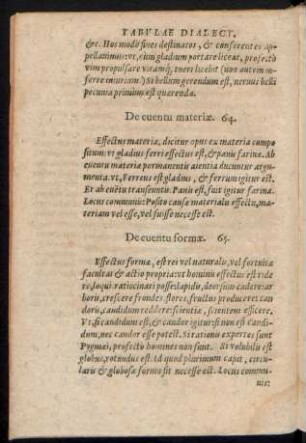 TABVLAE DIALECT.
&c. Hos modis fines destinatos, & conferentes ap-
pellauimus: vt, cùm gladium portare liceat, profectò
vim propulsare vitamq́; tueri licebit (non autem in-
ferre iniuriam.) Si bellum gerendum est, neruus belli
pecunia primùm est quærenda.
De euentu materiæ. 64.
Effectus materiæ, dicitur opus ex materia compo
situm: vt gladius ferri effectus est, & panis farinæ. Ab
euentu materiæ permanentis aientia dicuntur argu-
menta: vt, Ferreus est gladius, & ferrum igitur est.
Et ab euẽtu transeuntis. Panis est, fuit igitur farina.
Locus communis: Posito causæ materialis effectu, ma-
teriam vel esse, vel fuisse necesse est.
De euentu formæ. 65.
Effectus formæ, est rei vel naturalis, vel fortuitæ
facultas & actio propria: vt homini effectus est ride
re, loqui, ratiocinari posse: lapidis, deorsum cadere: ar
boris, crescere, frondes, flores, fructus producere: can
doris, candidum reddere: scientiæ, scientem efficere.
Vt, si candidum est, & candor igitur: si non est candi-
dum, nec candor esse potest. Si rationis expertes sunt
Pygmæi, profectò homines non sunt. Si volubilis est
globus, rotundus est. Id quod plurimum capit, circu-
laris & globosæ formæ sit necesse est. Locus commu-
nis: